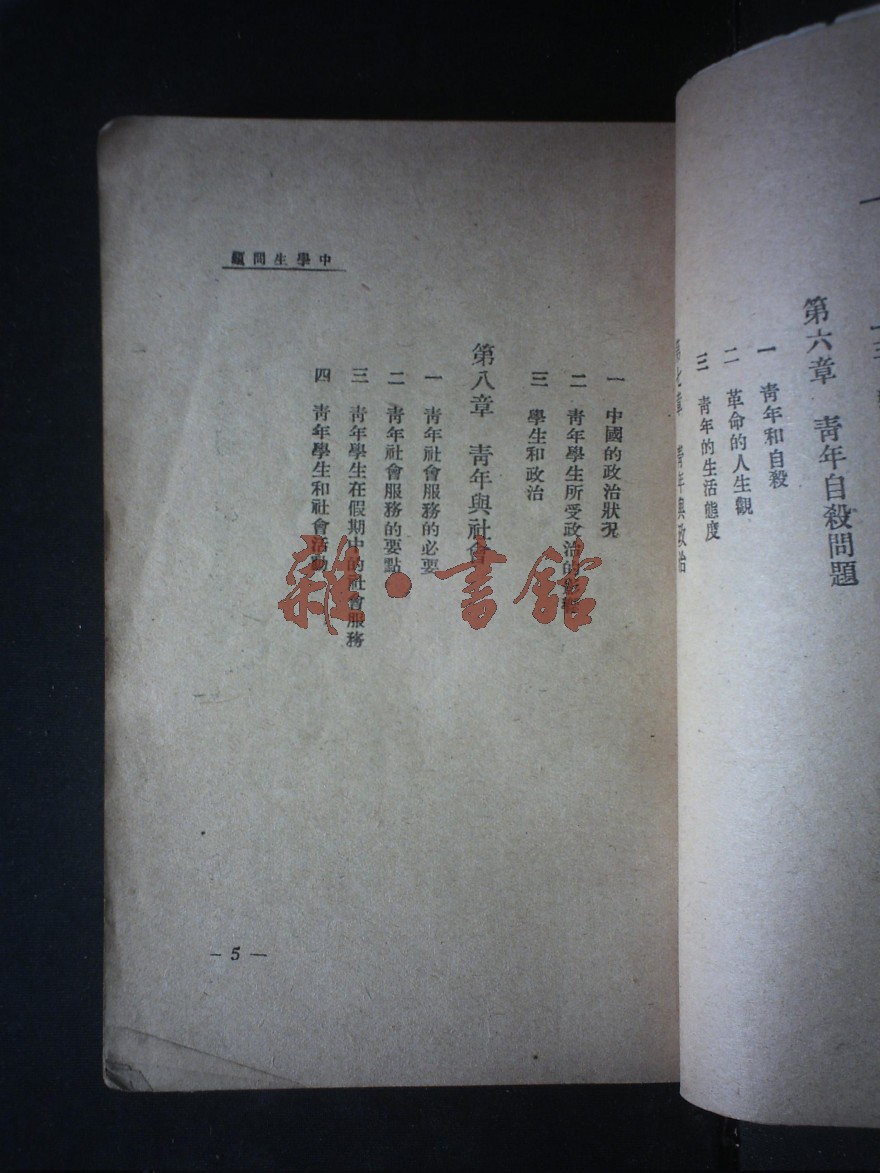 第六章 青年自殺問題
一 青年和自殺
二 革命的人生觀
三 青年的生活態度
第七章 青年與政治
中學生問題
一 中國的政治狀況
二 青年學生所受政治的影響
三 學生和政治
第八章 青年與社會
一 青年社會服務的必要
二 青年社會服務的要點
三 青年學生在假期中的社會服務
四 青年學生和社會活動
— 5 —
雜·書館